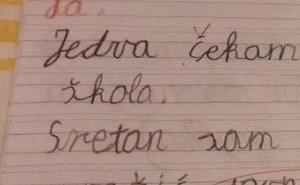 da.
Jedva čekam
škola.
Sretan sam